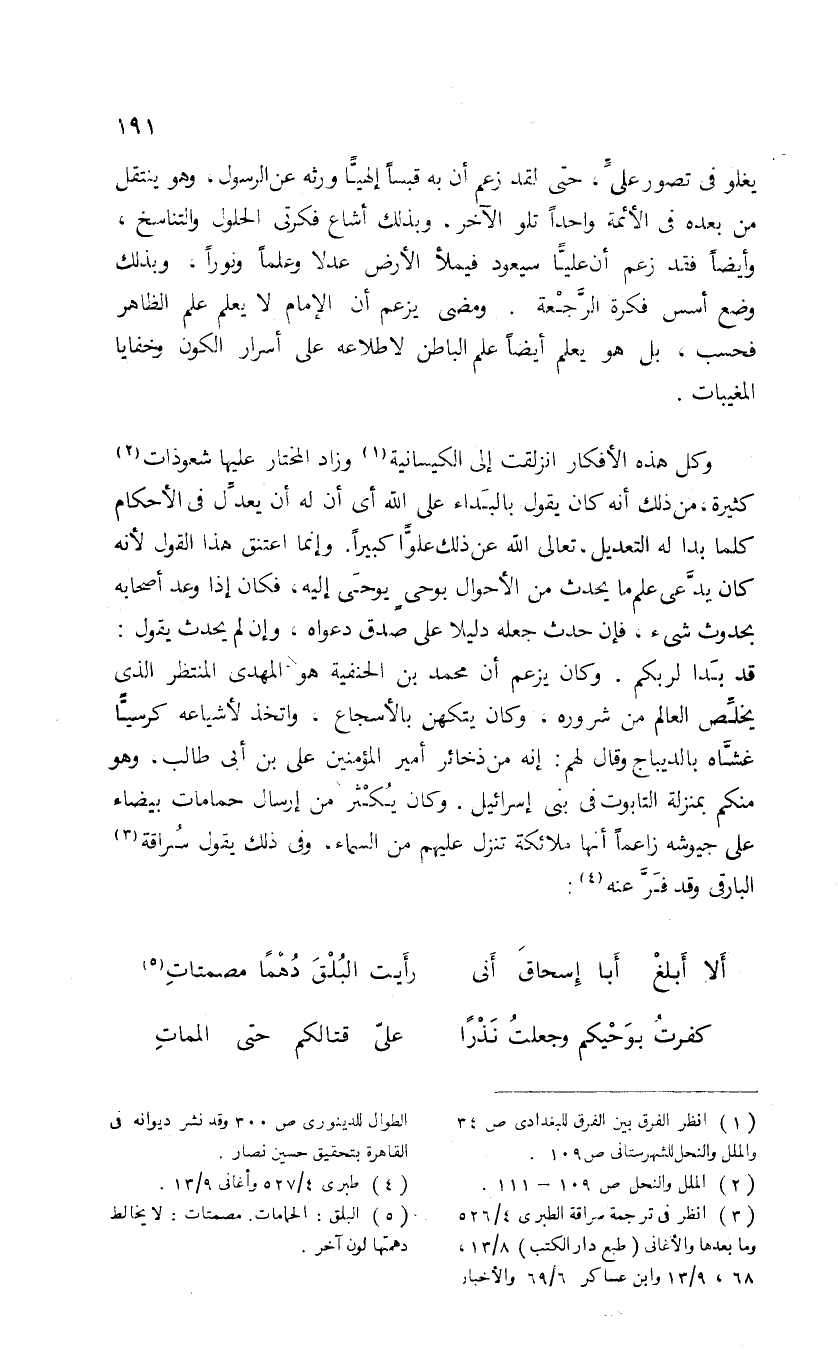 ١٩١
يغلو فى تصور علىٍّ ، حتى لقد زعم أن به قبساً إلهيًّا ورثه عن الرسول ، وهو ينتقل
من بعده فى الأئمة واحداً تلو الآخر . وبذلك أشاع فكرتى الحلول والتناسخ ،
وأيضاً فقد زعم أن عليًّا سيعود فيملأ الأرض عدلا وعلماً ونوراً ، وبذلك
وضع أسس فكرة الرَّجْعة . ومضى يزعم أن الإمام لا يعلم علم الظاهر
فحسب ، بل هو يعلم أيضاً علم الباطن لاطلاعه على أسرار الكون وخفايا
المغيبات .
وكل هذه الأفكار انزلقت إلى الكيسانية(١) وزاد المختار عليها شعوذات(٢)
كثيرة ، من ذلك أنه كان يقول بالبَداء على الله أى أن له أن يعدِّل فى الأحكام
كلما بدا له التعديل . تعالى الله عن ذلك علوًّا كبيراً . وإنما اعتنق هذا القول لأنه
كان يدَّعى علم ما يحدث من الأحوال بوحىٍ يوحَى إليه ، فكان إذا وعد أصحابه
بحدوث شىء ، فإن حدث جعله دليلا على صدق دعواه ، وإن لم يحدث يقول :
قد بَدا لربكم . وكان يزعم أن محمد بن الحنفية هو المهدى المنتظر الذى
يخلِّص العالم من شروره ، وكان يتكهن بالأسجاع ، واتخذ لأشياعه كرسيًّا
غشَّاه بالديباج وقال لهم : إنه من ذخائر أمير المؤمنين على بن أبى طالب ، وهو
منكم بمنزلة التابوت فى بنى إسرائيل . وكان يُكْثر من إرسال حمامات بيضاء
على جيوشه زاعماً أنها ملائكة تنزل عليهم من السماء . وفى ذلك يقول سُراقة(٣)
البارقى وقد فَرَّ عنه(٤) :
أَلا أَبلغْ أَبا إِسحاقَ أَنى رأَيت البُلْقَ دُهْمًا مصمتاتِ(٥)
كفرتُ بوَحْيكم وجعلتُ نَذْرًا علىّ قتالكم حتى المماتِ
(١) انظر الفرق بين الفرق للبغدادى ص ٣٤
والملل والنحل للشهرستانى ص ١٠٩ .
(٢) الملل والنحل ص ١٠٩ – ١١١ .
(٣) انظر فى ترجمة سراقة الطبرى ٤/٥٢٦
وما بعدها والأغانى ( طبع دار الكتب ) ٨/١٣ ،
٦٨ ، ٩/١٣ وابن عساكر ٦/٦٩ والأخبار
الطوال للدينورى ص ٣٠٠ وقد نشر ديوانه فى
القاهرة بتحقيق حسين نصار .
(٤) طبرى ٤/٥٢٧ وأغانى ٩/١٣ .
(٥) البلق : الحمامات . مصمتات : لا يخالط
دهمتها لون آخر .